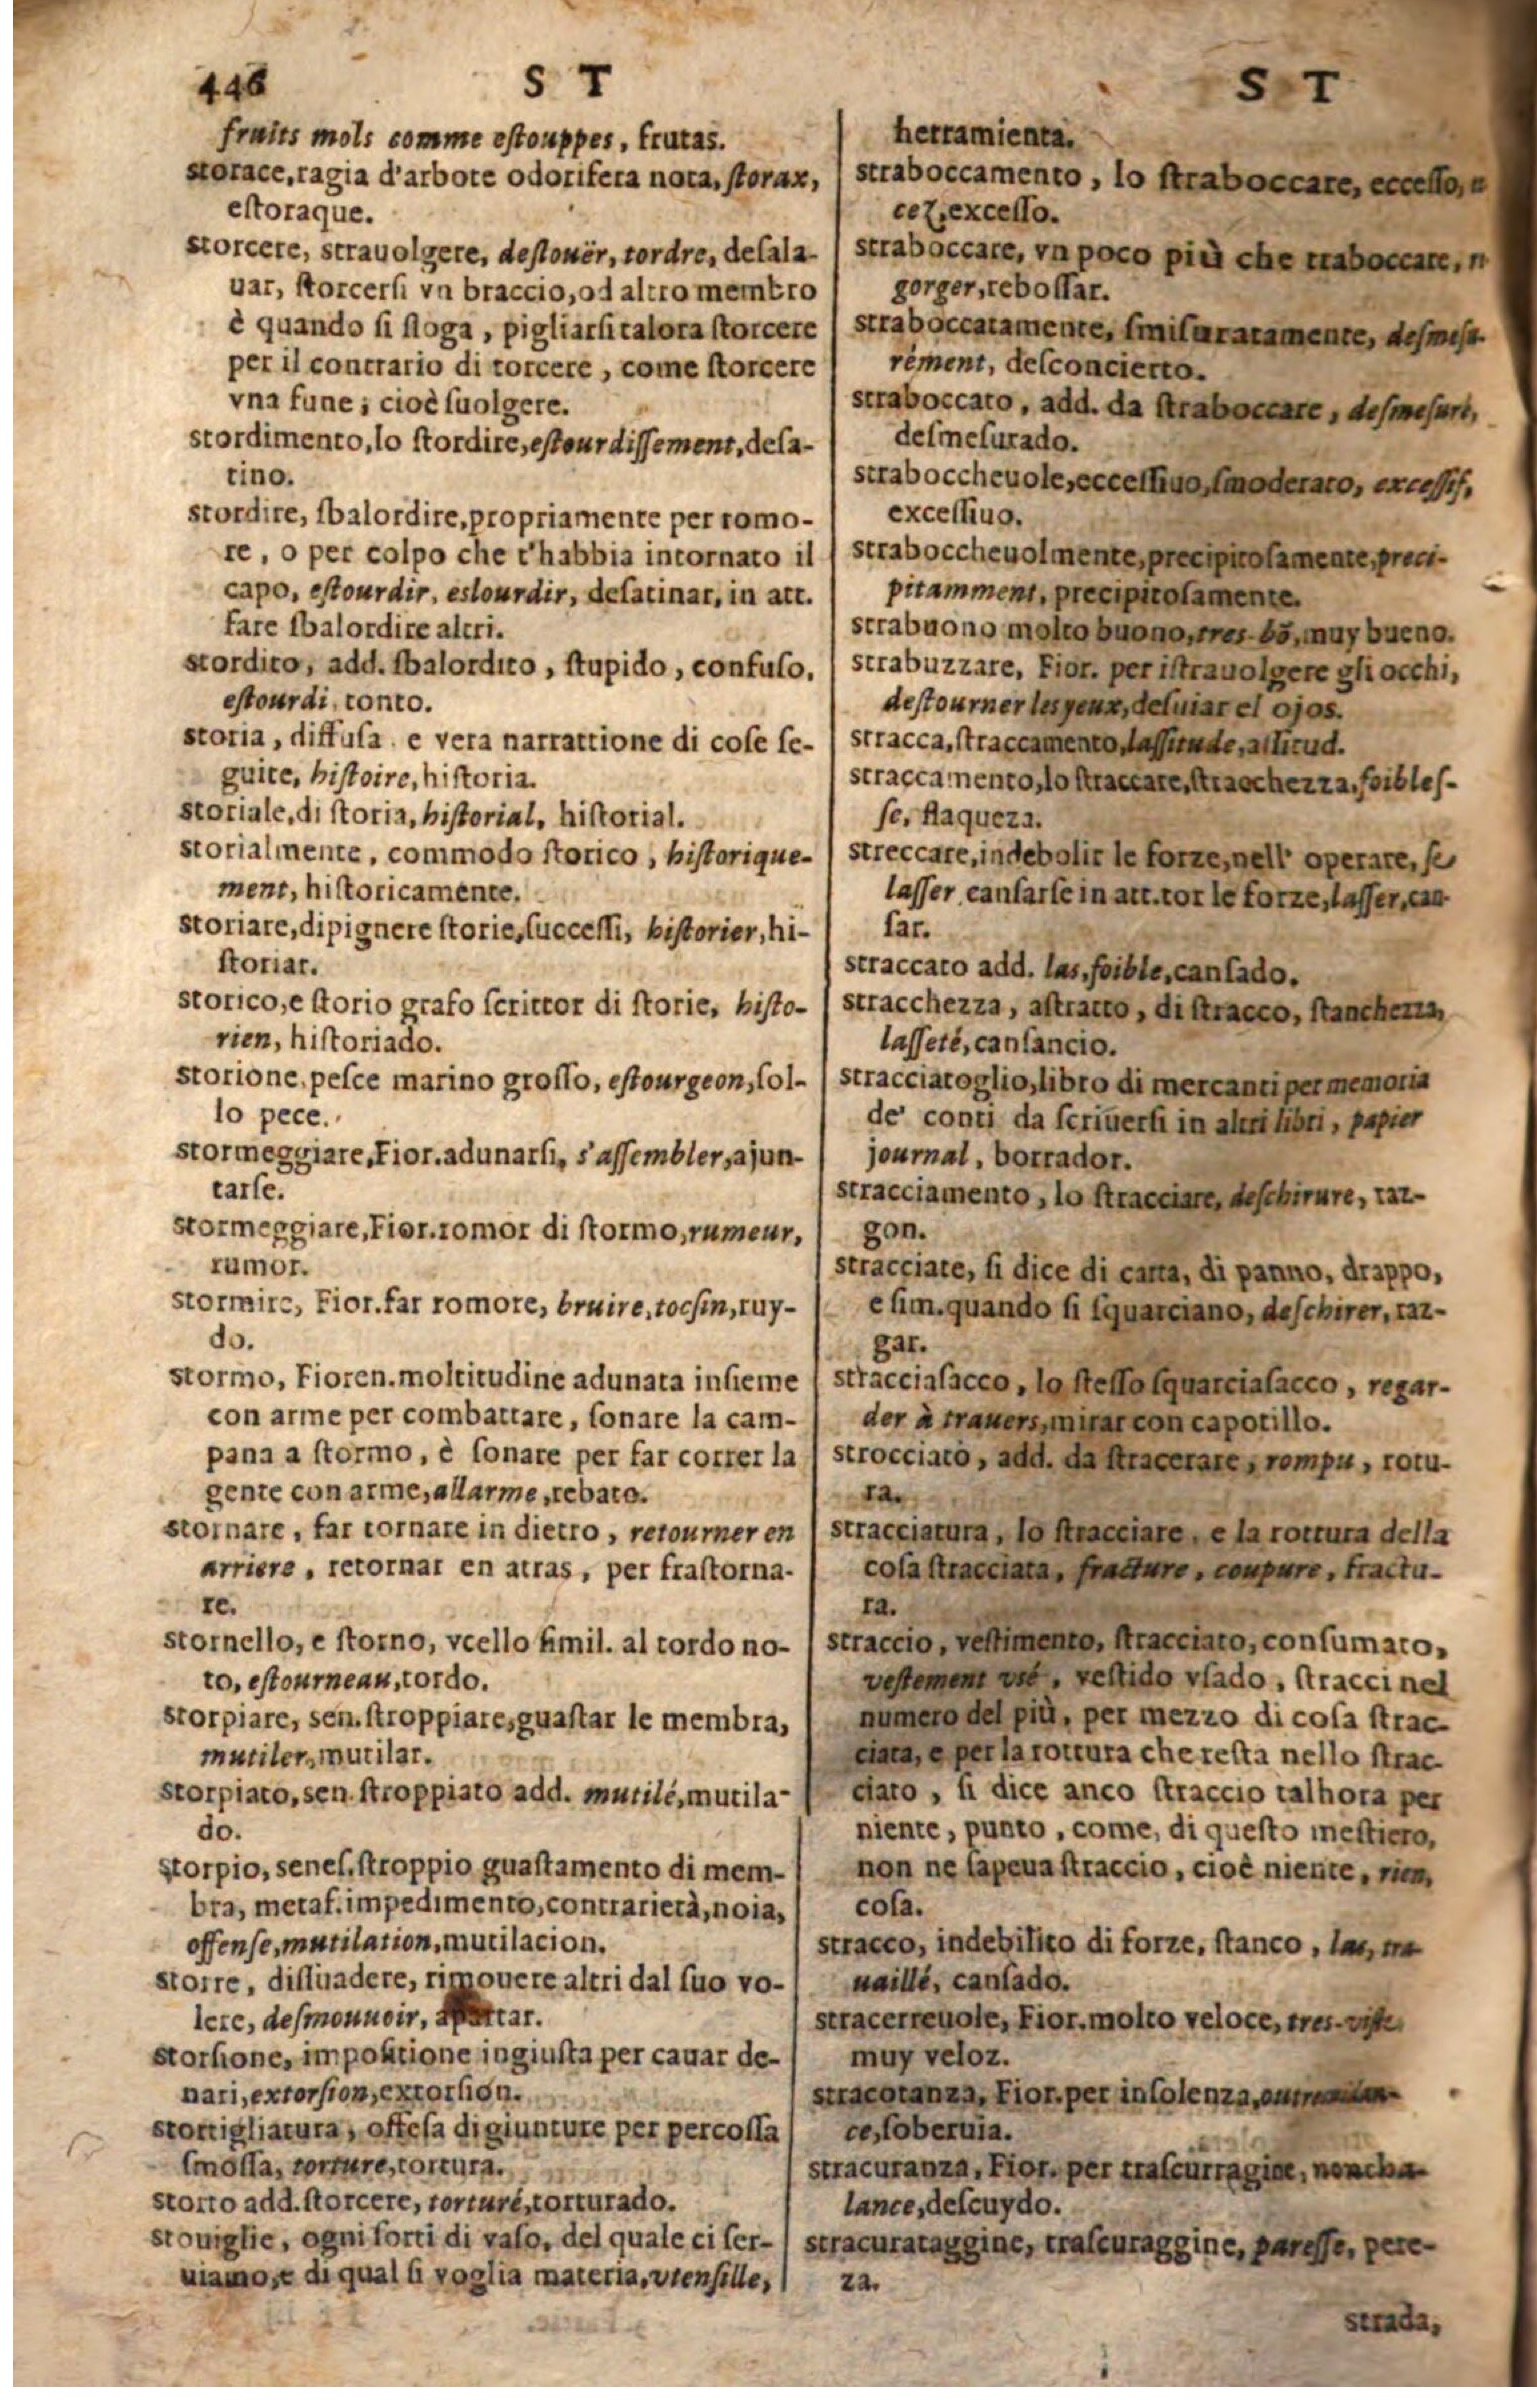 446
S T
fruits mols comme eſtouppes, frutas.
storace, ragia d'arbore odorifera nota, ſtorax,
eſtoraque.
storcere, strauolgere, deſtouër, tordre, deſala-
uar, ſtorcerſi vn braccio, od altro membro
è quando ſi ſloga, pigliarſi talora ſtorcere
per il contrario di torcere, come ſtorcere
vna fune; cioè ſuolgere.
stordimento, lo ſtordire, eſtourdiſſement, deſa-
tino.
stordire, ſbalordire, propriamente per romo-
re, o per colpo che t'habbia intornato il
capo, eſtourdir, eslourdir, deſatinar, in att.
fare ſbalordire altri.
stordito, add. ſbalordito, ſtupido, confuſo,
eſtourdi, tonto.
storia, diffuſa e vera narrattione di coſe ſe-
guite, hiſtoire, hiſtoria.
storiale, di ſtoria, hiſtorial, hiſtorial.
storialmente, commodo ſtorico, hiſtorique-
ment, hiſtoricamente.
storiare, dipignere ſtorie, ſucceſſi, hiſtorier, hi-
ſtoriar.
storico, e ſtorio grafo ſcrittor di ſtorie, hiſto-
rien, hiſtoriado.
storione, peſce marino groſſo, eſtourgeon, ſol-
lo pece.
stormeggiare, Fior. adunarſi, s'aſſembler, ajun-
tarſe.
stormeggiare, Fior. romor di ſtormo, rumeur,
rumor.
stormire, Fior. far romore, bruire, tocſin, ruy-
do.
stormo, Fioren. moltitudine adunata inſieme
con arme per combattare, ſonare la cam-
pana a ſtormo, è ſonare per far correr la
gente con arme, allarme, rebato.
stornare, far tornare in dietro, retourner en
arriere, retornar en atras, per fraſtorna-
re.
stornello, e ſtorno, vcello ſimil. al tordo no-
to, eſtourneau, tordo.
storpiare, sen. ſtroppiare, guaſtar le membra,
mutiler, mutilar.
storpiato, sen. ſtroppiato add. mutilé, mutila-
do.
storpio, seneſ. ſtroppio guaſtamento di mem-
bra, metaf. impedimento, contrarietà, noia,
offenſe, mutilation, mutilacion.
storre, diſſuadere, rimouere altri dal ſuo vo-
lere, deſmouuoir, apartar.
storſione, impoſitione ingiuſta per cauar de-
nari, extorſion, extorſion.
stortigliatura, offeſa di giunture per percoſſa
ſmoſſa, torture, tortura.
storto add. ſtorcere, torturé, torturado.
stouiglie, ogni ſorti di vaſo, del quale ci ſer-
uiamo, e di qual ſi voglia materia, vtenſille,
S T
herramienta.
straboccamento, lo ſtraboccare, ecceſſo,
cez, exceſſo.
straboccare, vn poco più che traboccare,
gorger, reboſſar.
straboccatamente, ſmiſuratamente, deſmeſu-
rément, deſconcierto.
straboccato, add. da ſtraboccare, deſmeſuré,
deſmeſurado.
straboccheuole, ecceſſiuo, ſmoderato, exceſſif,
exceſſiuo.
straboccheuolmente, precipitoſamente, preci-
pitamment, precipitoſamente.
strabuono molto buono, tres-bõ, muy bueno.
strabuzzare, Fior. per iſtrauolgere gli occhi,
deſtourner les yeux, deſuiar el ojos.
stracca, ſtraccamento, laſſitude,
straccamento, lo ſtraccare, ſtracchezza, foibleſ-
ſe, flaqueza.
streccare, indebolir le forze, nell' operare, ſe
laſſer canſarſe in att. tor le forze, laſſer, can-
ſar.
straccato add. las, foible, canſado.
stracchezza, aſtratto, di ſtracco, ſtanchezza,
laſſeté, canſancio.
stracciatoglio, libro di mercanti per memoria
de' conti da ſcriuerſi in altri libri, papier
journal, borrador.
stracciamento, lo ſtracciare, deſchirure, raz-
gon.
stracciate, ſi dice di carta, di panno, drappo,
e ſim. quando ſi ſquarciano, deſchirer, raz-
gar.
stracciaſacco, lo ſteſſo ſquarciaſacco, regar-
der à trauers, mirar con capotillo.
strocciato, add. da ſtracerare, rompu, rotu-
ra.
stracciatura, lo ſtracciare, e la rottura della
coſa ſtracciata, fracture, coupure, fractu-
ra.
straccio, veſtimento, ſtracciato, conſumato,
veſtement vsé, veſtido vſado, ſtracci nel
numero del più, per mezzo di coſa ſtrac-
ciata, e per la rottura che reſta nello ſtrac-
ciato, ſi dice anco ſtraccio talhora per
niente, punto, come, di queſto meſtiero,
non ne ſapeua ſtraccio, cioè niente, rien,
coſa.
stracco, indebilito di forze, ſtanco, las, tra-
uaillé, canſado.
stracerreuole, Fior. molto veloce, tres-viſte
muy veloz.
stracotanza, Fior. per inſolenza,
ce, ſoberuia.
stracuranza, Fior. per traſcurragine, noncha-
lance, deſcuydo.
stracurataggine, traſcuraggine, pareſſe, pere-
za.
strada,